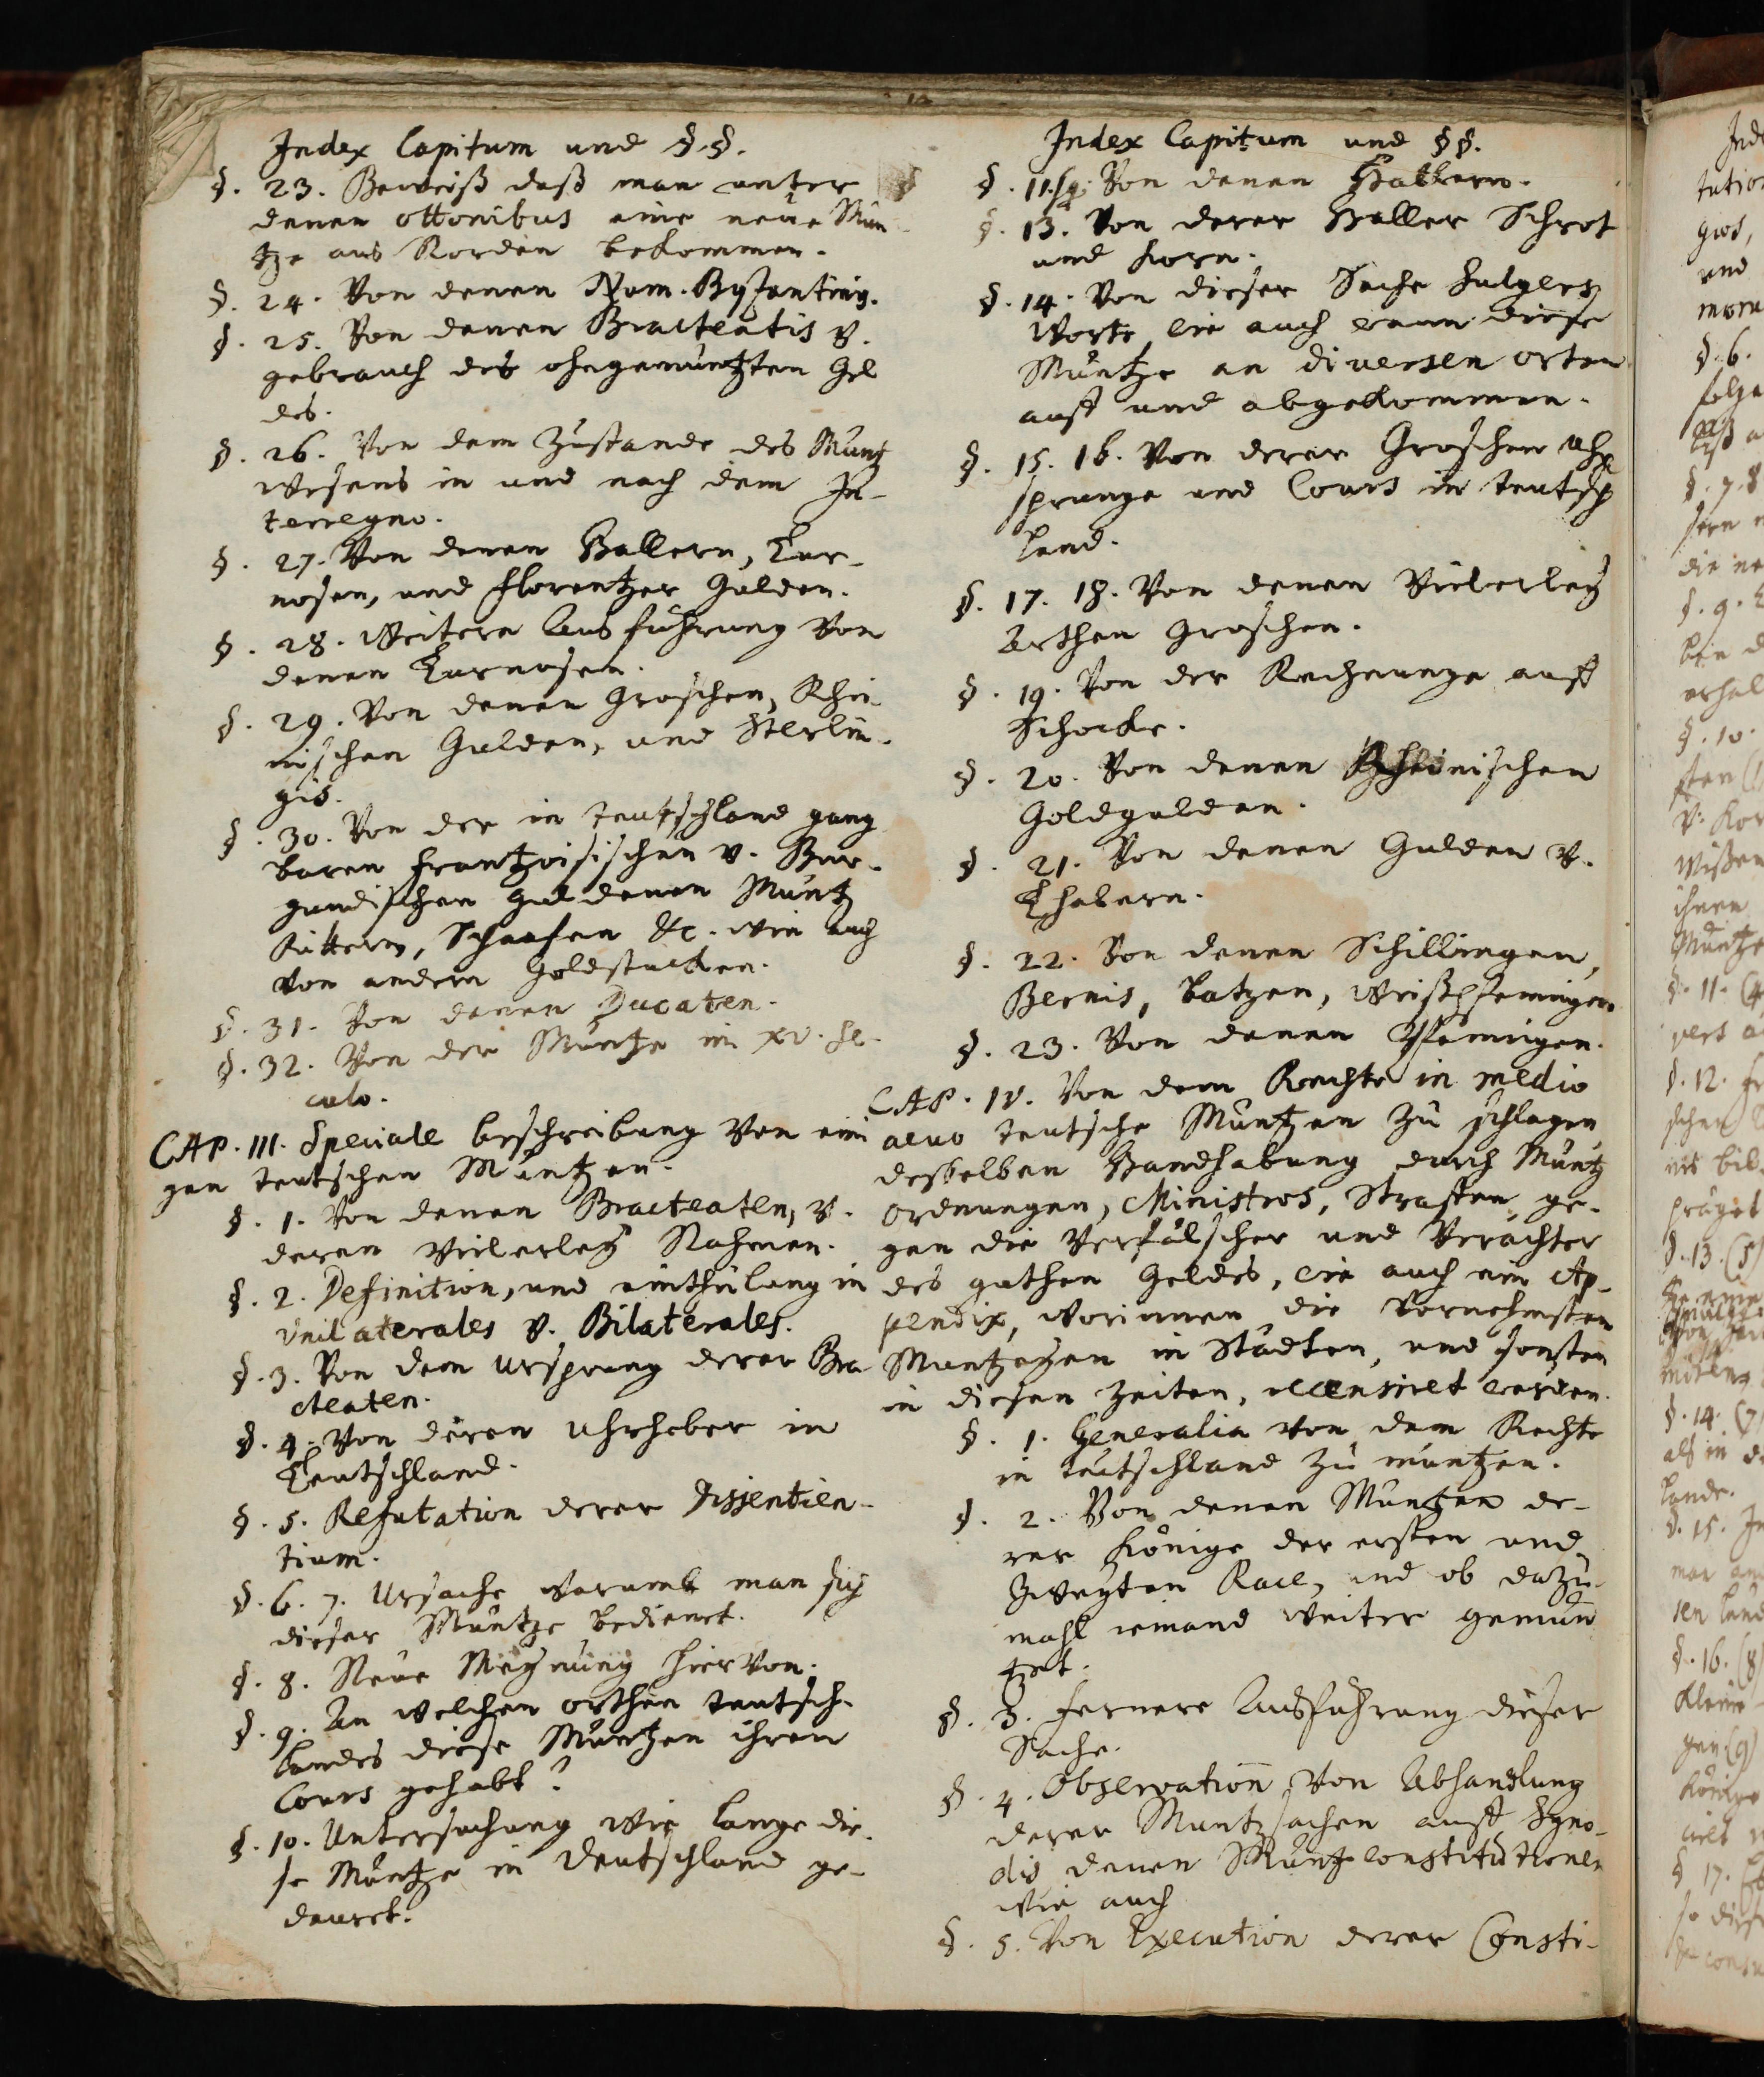 Index Capitum und §.§.
§. 23. Beweiß daß man unter
denen Ottonibus eine neüe Mün
tze aus Norden bekommen.
§. 24. Von denen Num. Bysantinis.
§. 25. Von denen Bracteatis v.
gebrauch des ohngemüntzten Gel
des.
§. 26. Von dem Zustande des Müntz
wesens in und nach dem In-
terregno.
§. 27. Von denen Hallern, Tur-
nosen, und Florentzer Gulden.
§. 28. Weitere Ausführung von
denen Turnosen.
§. 29. Von denen Groschen, Rhei-
nischen Gulden, und Sterlin-
gis.
§. 30. Von der in Teutschland gang
baren Frantzoisischen v. Bur-
gundischen Guldenen Müntz
Rittern, Schaafen &c. wie auch
von andern Goldstücken.
§. 31. Von denen Ducaten.
§. 32. Von der Müntze im XV. Se-
culo.
CAP. III. Speciale beschreibung von eini
gen teutschen Müntzen.
§. 1. Von denen Bracteaten, v.
deren vielerley Nahmen.
§. 2. Definition, und eintheilung in
Unilaterales v. Bilaterales.
§. 3. Von dem Ursprung derer Bra-
cteaten.
§. 4. Von deren Uhrheber in
Teutschland.
§. 5. Refutation derer Dissentien-
tium.
§. 6. 7. Ursache warumb man sich
dieser Müntze bedienet.
§. 8. Neue Meynung hiervon.
§. 9. An welchen orthen teutsch-
landes diese Müntzen ihren
Cours gehabt?
§. 10. Untersuchung wie lange die-
se Müntze in Deutschland ge-
dauret.
Index Capitum und §§.
§. 11. sq. Von denen Hallern.
§. 13. Von derer Haller Schrot
und Korn.
§. 14. Von dieser Sache
Worte, wie auch wann diese
Müntze an diversen orten
auff und abgekommen.
§. 15. 16. Von derer Groschen Uhr
sprunge und Cours in teutsch
land.
§. 17. 18. Von denen vielerley
Arthen Groschen.
§. 19. Von der Rechnunge auff
Schocke.
§. 20. Von denen Rheinischen
Goldgulden.
§. 21. Von denen Gulden v.
Thalern.
§. 22. Von denen Schillingen,
Bernis, Batzen, Weißpfennigen.
§. 23. Von denen Pfennigen.
CAP. IV. Von dem Rechte in medio
aeuo teutsche Müntzen zu schlagen
desselben Handhabung durch Müntz
Ordnungen, Ministros, Straffen, ge-
gen die Verfälscher und Verächter
des guthen Geldes, wie auch ein Ap-
pendix, worinnen die vornehmsten
Müntzeyen in Städten, und sonsten
in diesen Zeiten, recensiret werden.
§. 1. Generalia von dem Rechte
in Teutschland zu müntzen.
§. 2. Von denen Müntzen de-
rer Könige der ersten und
Zweyten Race, und ob dazu-
mahl iemand weiter gemün
tzet.
§. 3. Fernere Ausführung dieser
Sache.
§. 4. Observation von Abhandlung
derer Müntzsachen auff Syno-
dis denen Müntzconstitutionen
wie auch
§. 5. Von Execution derer Consti-